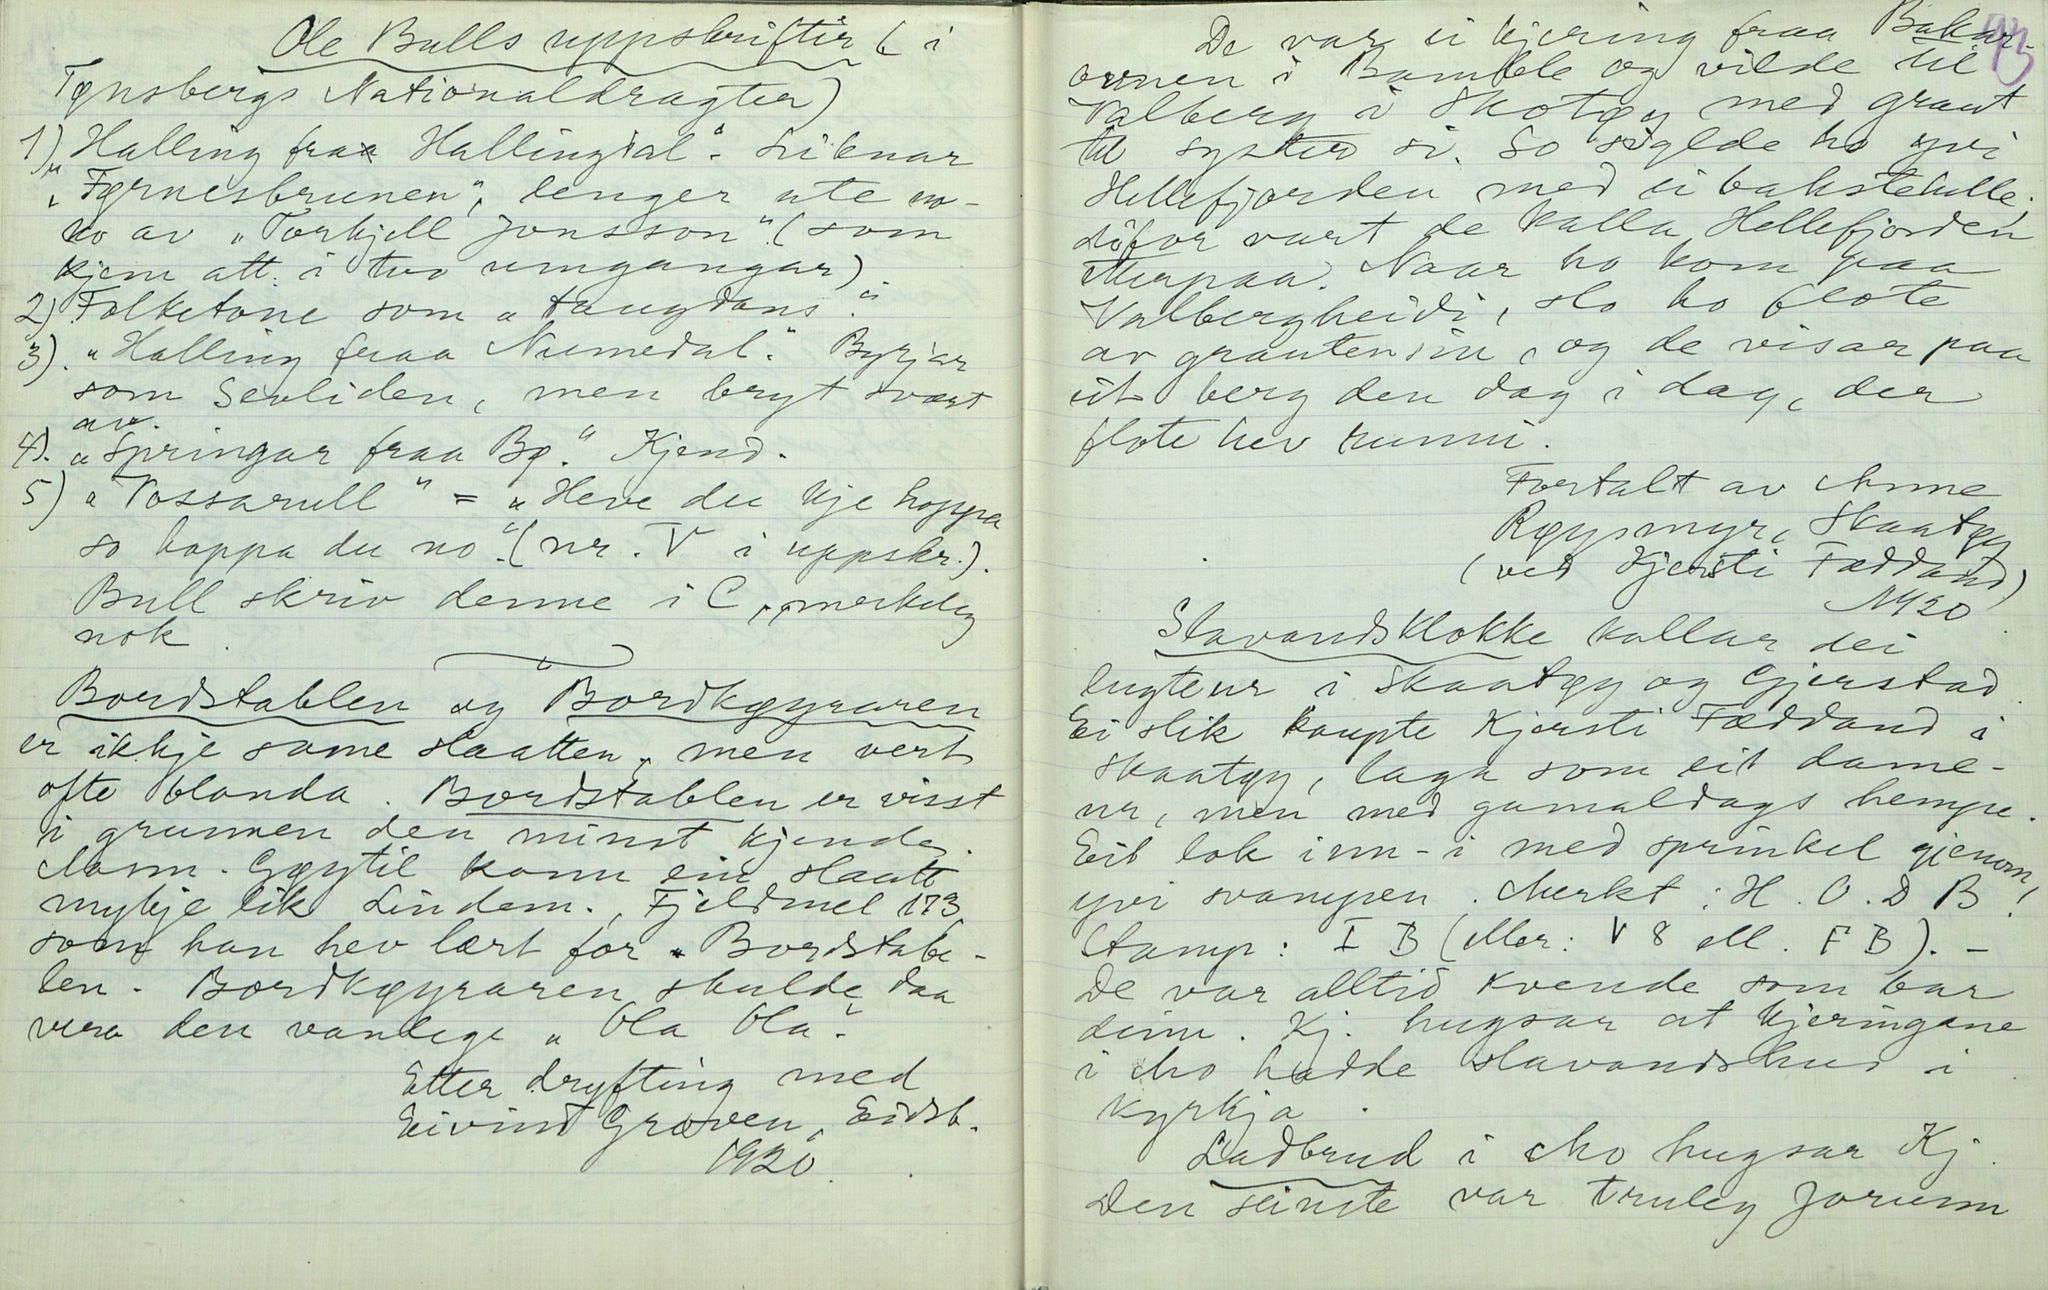 Ole Bulls uppskrifter (i
Tønsbergs Nationaldragter)
1) „Halling fraa Hallingdal". Liknar
„Førnesbrunen", lenger ute no-
ko av „Torkjell Jonsson". (som
kjem att i two umgangar)
2) Folketone som „ tangdans".
3). „Halling fraa Numedal". Byrjar
som Sevliden, men bryt svært
av.
4). „Springar fraa Bø." Kjend.
5) „Vossarull" = „Heve du kje hoppa
so hoppa du no". (nr. V i uppskr.).
Bull skriv denne i C, merkeleg
nok.
Bordstablen og Bordkøyraren
er ikkje same slaatten, men vert
ofte blanda. Bordstablen er visst
i grunnen den minst kjende.
Mann. Gøytil kann ein slaatt
mykje lik Lindem., Fjeldmel 173
som han hev lært for „Bordstabe-
len. Bordkøyraren skulde daa
vera den vanlege „Ola Ola".
Etter drøfting med
Eivind Groven, Eidsb.
1920.
93
De var ei kjering fraa Bakar-
ovnen i Bamble og vilde til
Valberg i Skotøy med graut
til syster si. So siglde ho yvi
Hellefjorden med ei bakstehelle,
difor vart de kalla Hellefjorden
ettepaa. Naar ho kom paa
Valbergheidi, slo ho flote
av grauten sin, og de visar paa
eit berg den dag i dag, der
flote hev runni.
Fortalt av Anne
Røysmyr, Skaatøy
(ved Kjersti Fæddand)
1920.
Slavandsklokke kallar dei
lugteur i Skaatøy og Gjerstad.
Ei slik kaupte Kjersti Fæddand i
Skaatøy, laga som eit dame-
ur, men med gamaldags hempe.
Eit lok inn-i med sprinkel gjenom,
yvi svampen. Merkt: H. O. D B!
Stamp: I B (eller: V 8 ell. F B). –
De var alltid kvende som bar
deim. Kj. hugsar at kjeringane
i Mo hadde slavandshus i
kyrkja.
Ladbrud i Mo hugsar Kj.
Den seinste var truleg Jorunn